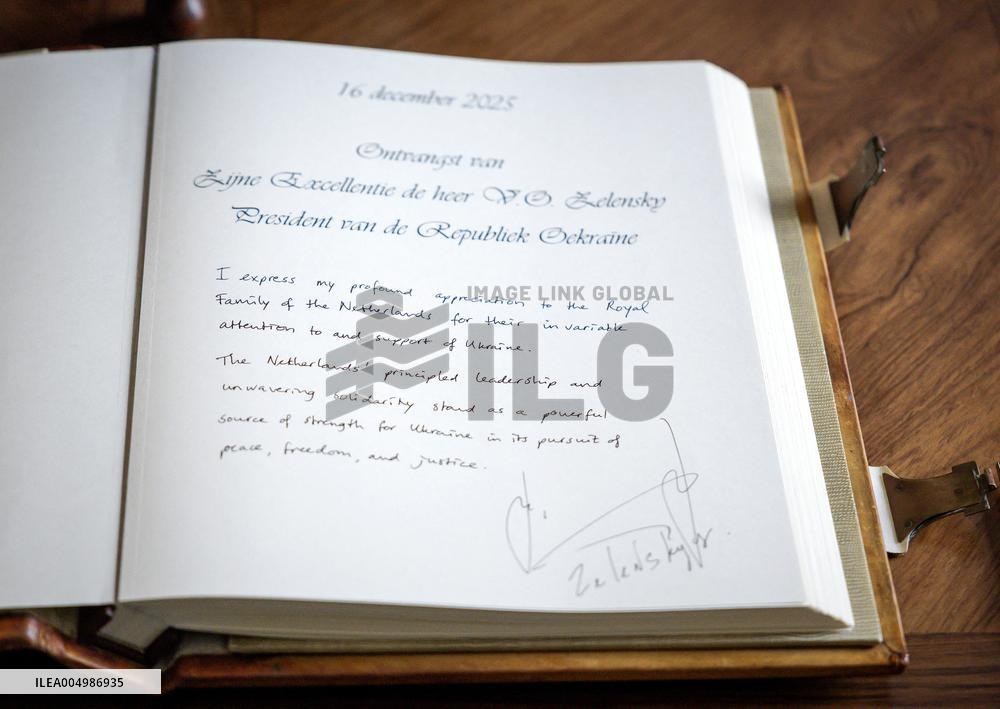 16 december 2025
Ontvangst van
Zijne Excellentie de heer V.O. Zelensky
President van de Republiek Oekraïne
I express my profound appreciation to the Royal
IMAGE LINK GLOBAL
Family of the Netherlands for their invariable
attention to and support of Ukraine.
ILG
The Netherlands' principled leadership and
unwavering solidarity stand as a powerful
source of strength for Ukraine in its pursuit of
peace, freedom, and justice.
Zelenskyy
ILEA004986935